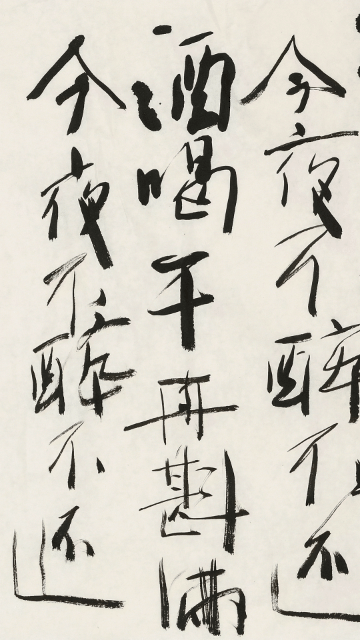 今夜不醉不还
酒喝干再斟满
今夜不醉不还